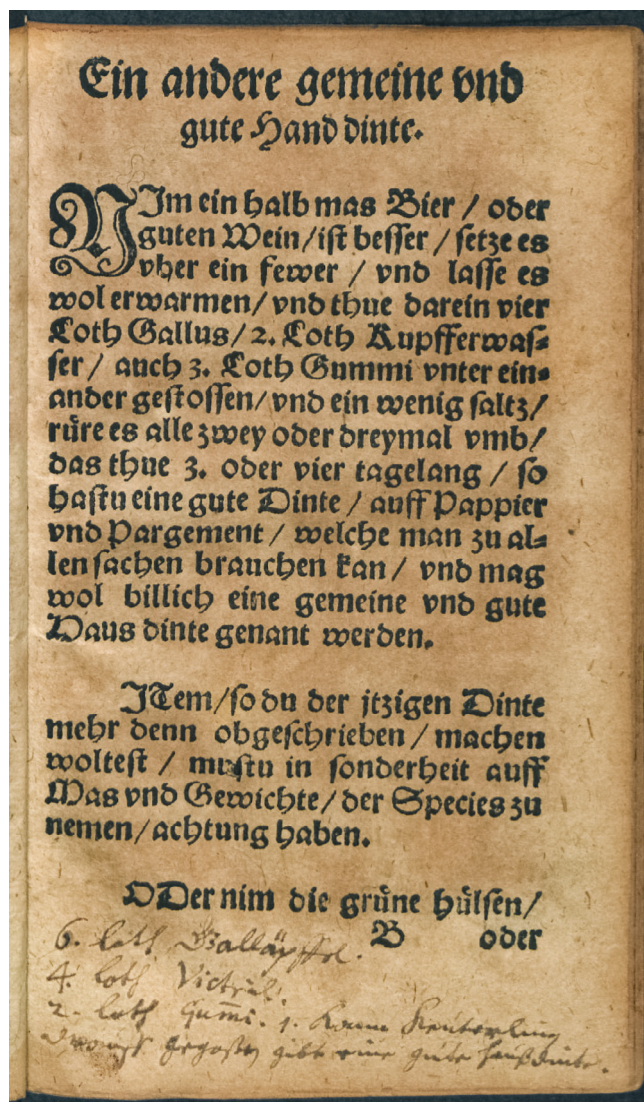 Ein andere gemeine vnd
gute Hand dinte.
NIm ein halb mas Bier / oder
guten Wein/ist besser / setze es
vber ein fewer / vnd lasse es
wol erwarmen/ vnd thue darein vier
Loth Gallus/ 2. Loth Kupfferwas⸗
ser / auch 3. Loth Gummi vnter ein⸗
ander gestossen/ vnd ein wenig saltz/
rüre es alle zwey oder dreymal vmb/
das thue 3. oder vier tagelang / so
hastu eine gute Dinte / auff Pappier
vnd Pargement / welche man zu al⸗
len sachen brauchen kan / vnd mag
wol billich eine gemeine vnd gute
Haus dinte genant werden.
JTem/so du der jtzigen Dinte
mehr denn obgeschrieben / machen
woltest / mustu in sonderheit auff
Mas vnd Gewichte/ der Species zu
nemen/ achtung haben.
ODer nim die grüne hülsen/
B oder
6. loth Galläpffel.
4. loth Victril.
2. loth Gummi. 1. Kanne
gegossen gibt eine gute haußdinte.